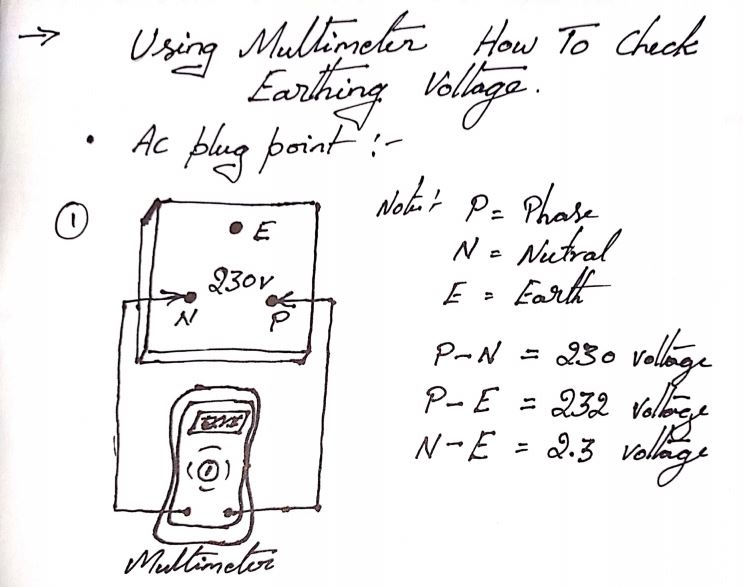 → Using Multimeter How To Check
Earthing Voltage.
• Ac plug point :-
①
E
230v
N P
Multimeter
Note :- P = Phase
N = Nutral
E = Earth
P-N = 230 voltage
P-E = 232 voltage
N-E = 2.3 voltage